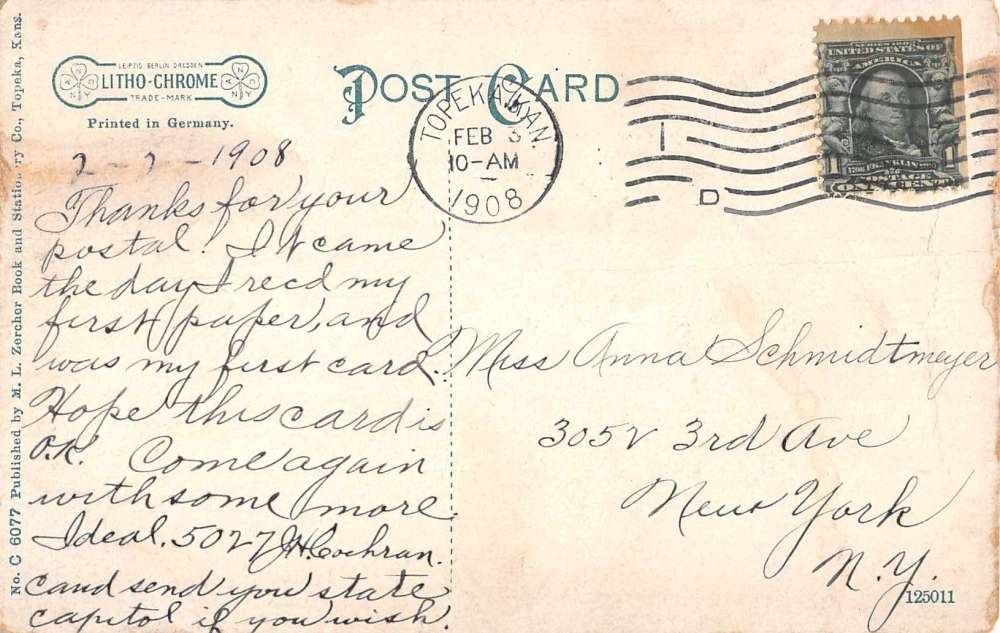 LEIPZIG BERLIN DRESDEN
LITHO-CHROME
TRADE-MARK
Printed in Germany.
POST CARD
TOPEKA, KAN.
FEB 3
10-AM
1908
1
D
SERIES 1902
UNITED STATES OF AMERICA
FRANKLIN
POSTAGE
ONE CENT
2-2-1908
Thanks for your
postal. It came
the day I recd my
first paper, and
was my first card.
Hope this card is
O.K. Come again
with some more
Ideal. 5027 J.H. Cochran.
cand send you state
capitol if you wish.
Miss Anna Schmidtmeyer
305 3rd Ave
New York
N.Y.
125011
No. C 6077 Published by M. L. Zercher Book and Stationery Co., Topeka, Kans.